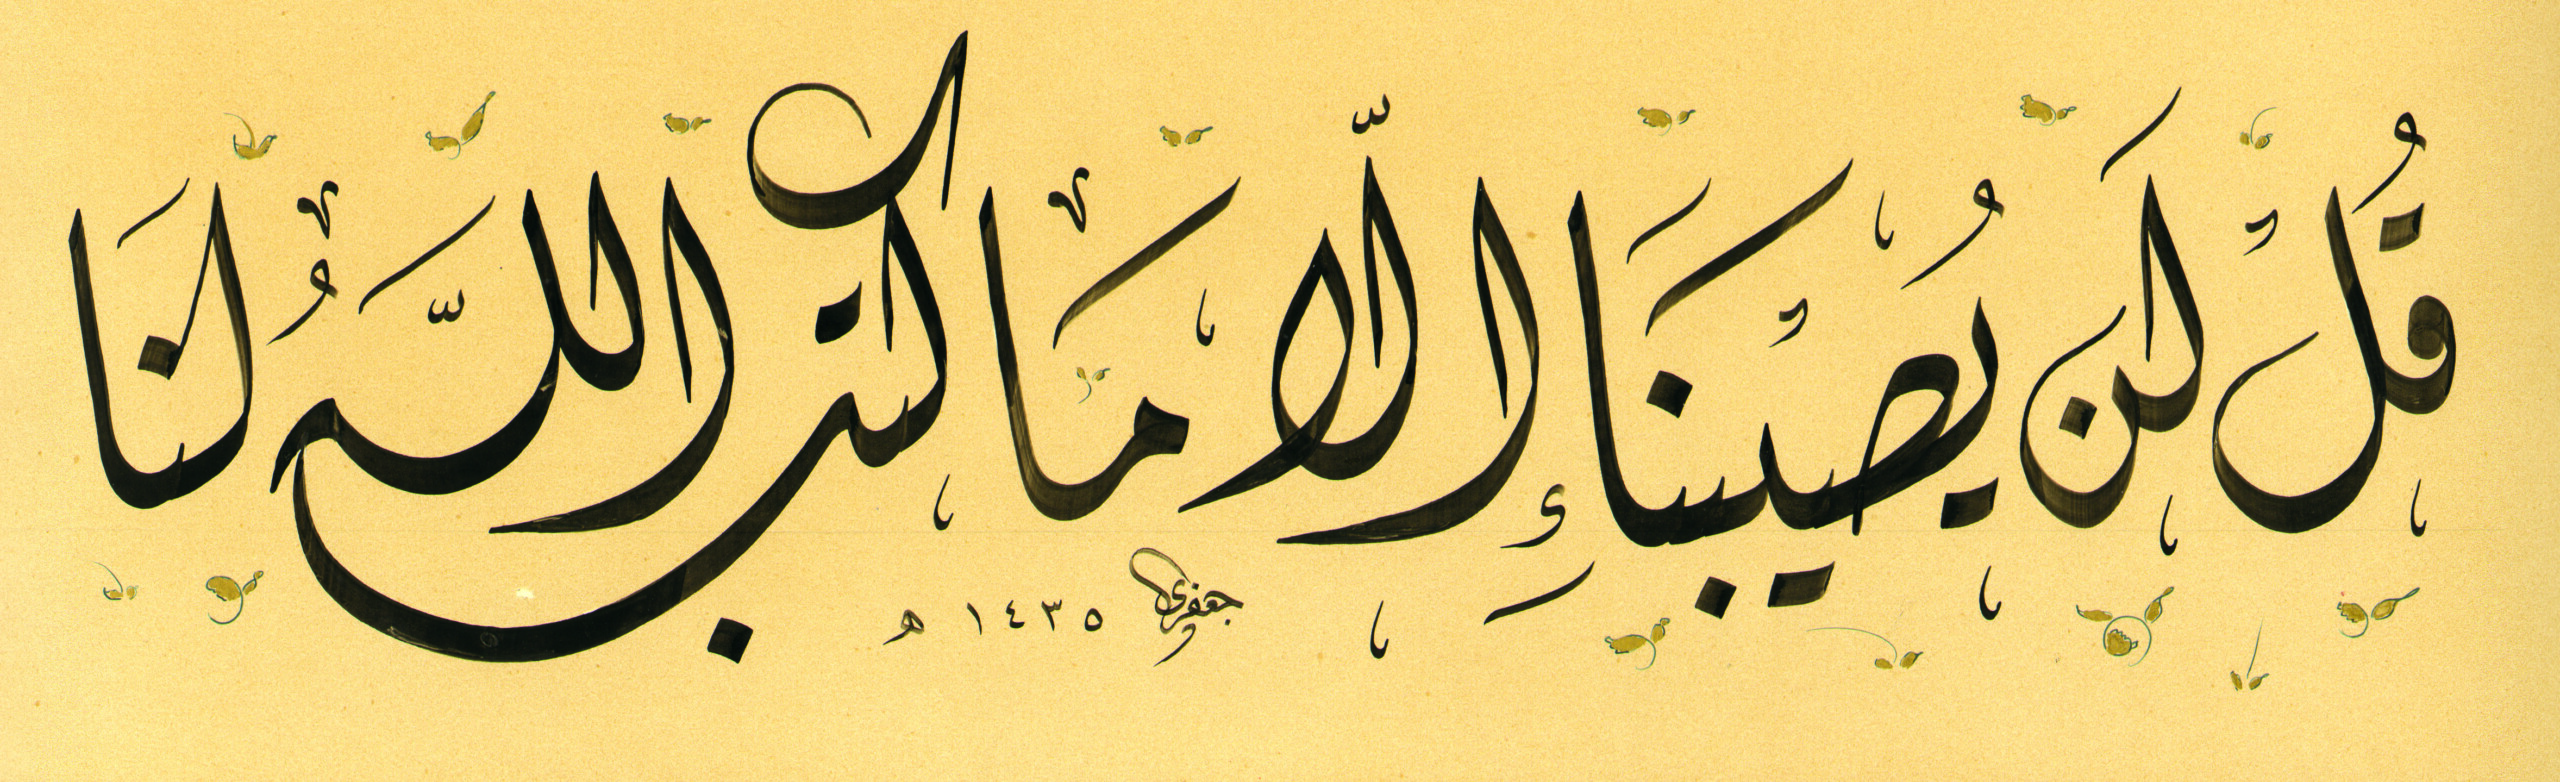 قُلْ لَنْ يُصِيبَنَا إِلَّا مَا كَتَبَ اللَّهُ لَنَا
جعفري ١٤٣٥ هـ